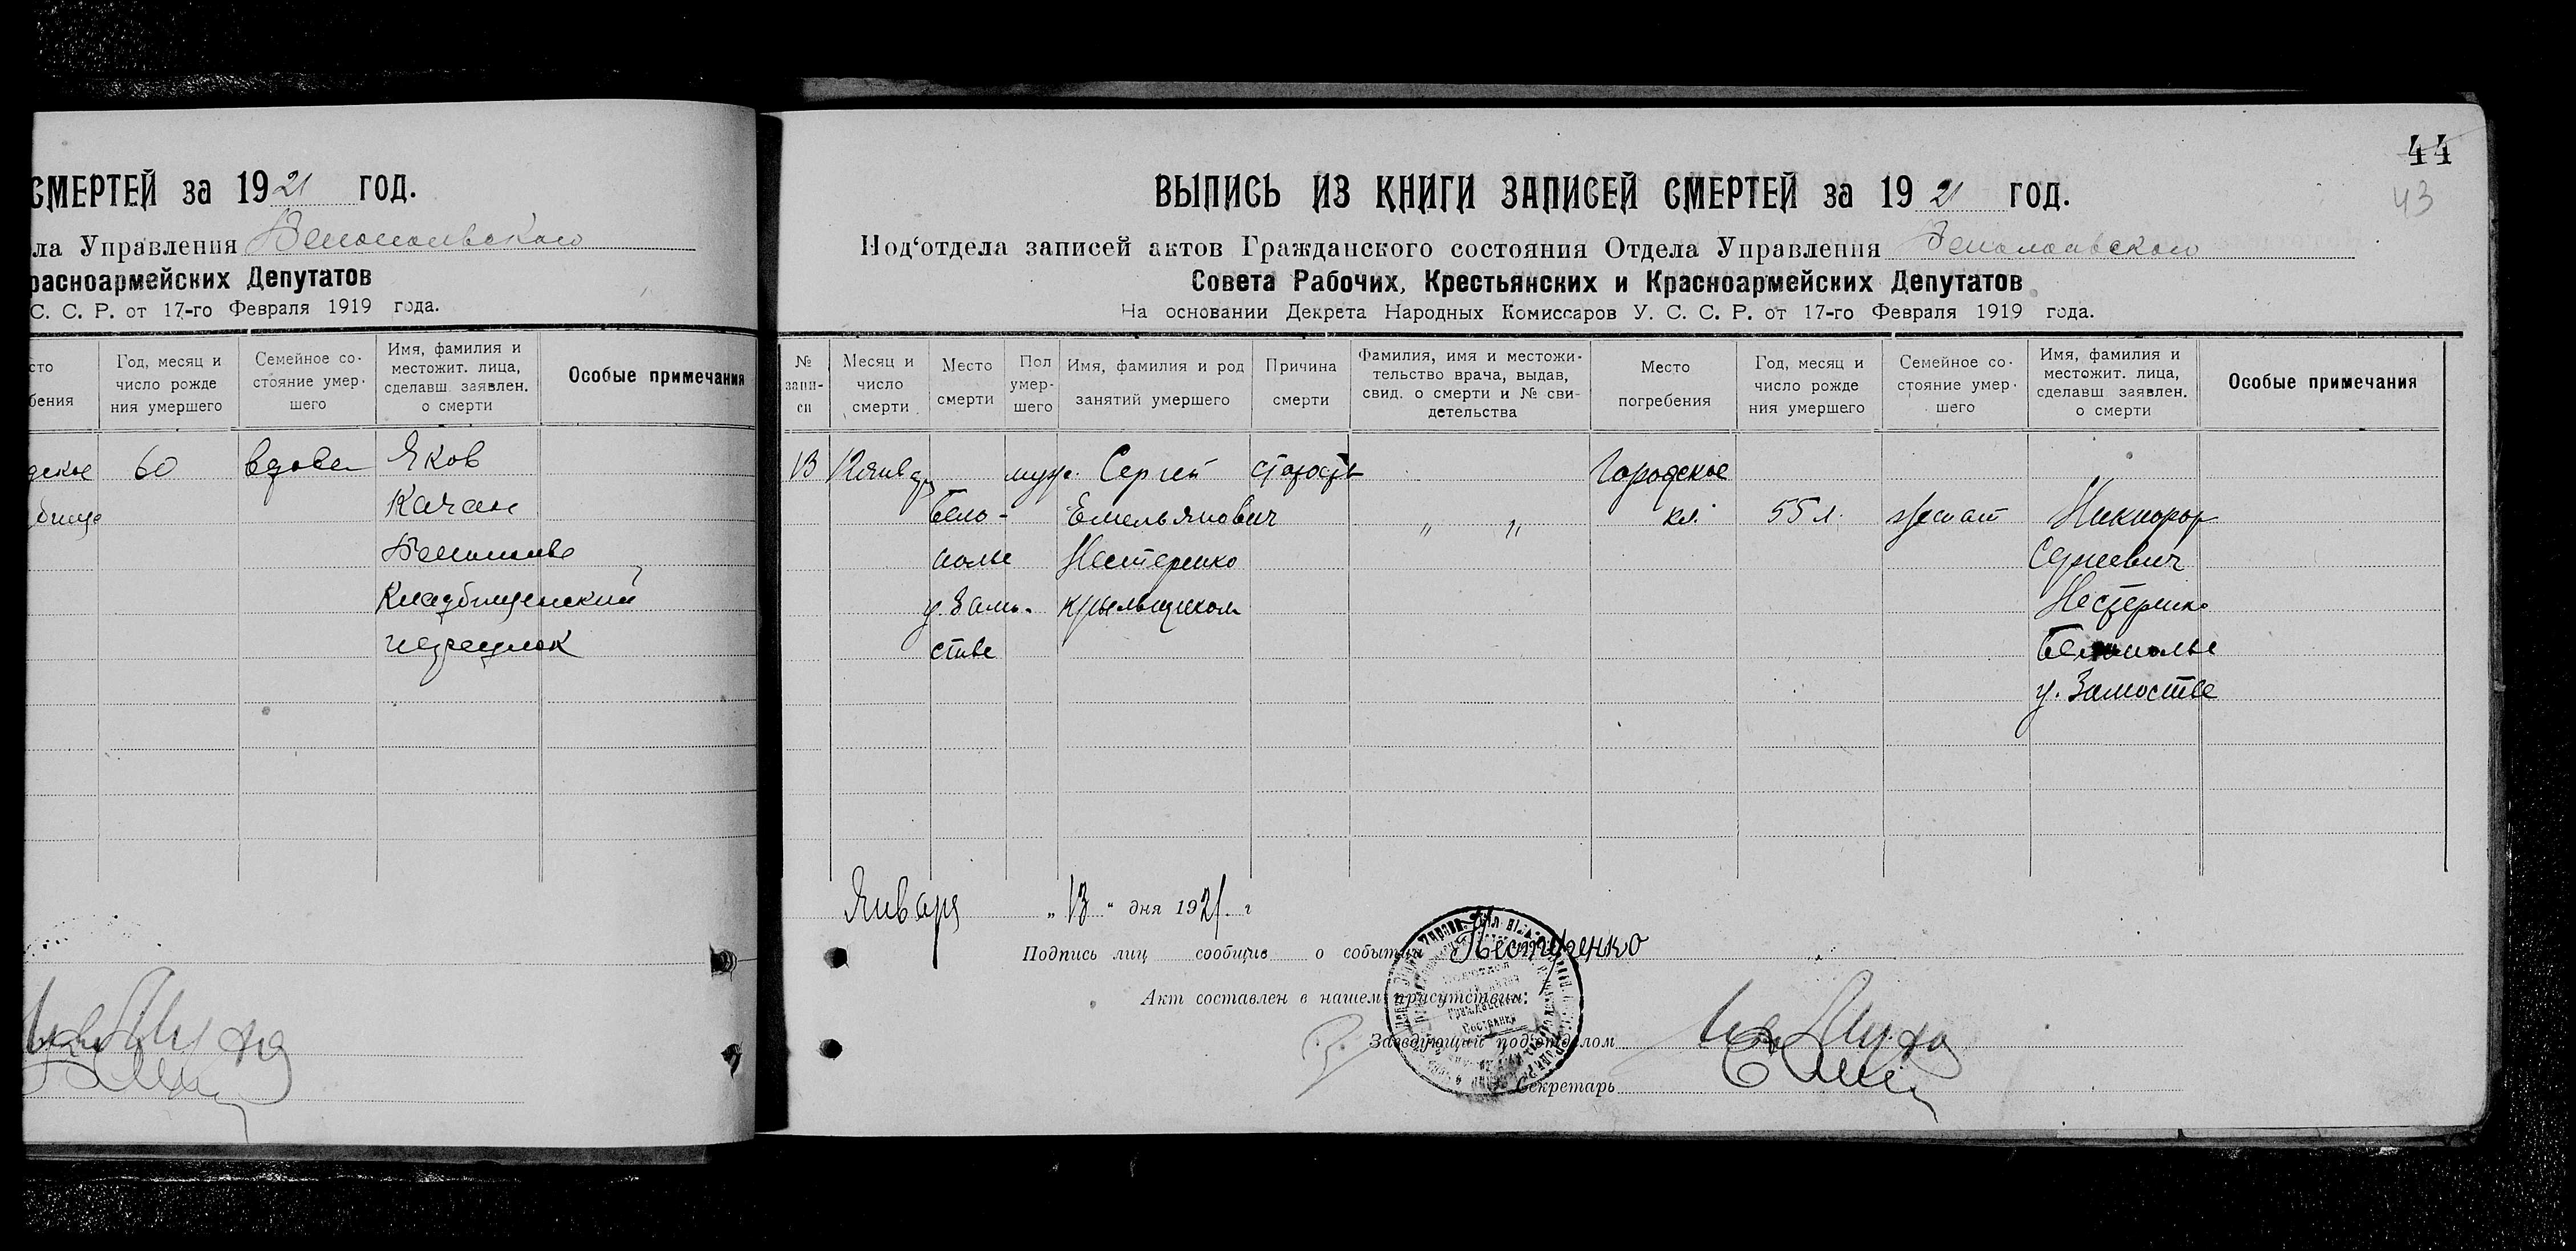 СМЕРТЕЙ за 1921 год.
ла Управления Белопольского
расноармейских Депутатов
С. С. Р. от 17-го Февраля 1919 года.
сто
бения
Год, месяц и
число рожде
ния умершего
Семейное со-
стояние умер-
шего
Имя, фамилия и
местожит. лица,
сделавш. заявлен.
о смерти
Особые примечания
дское
60
вдова
Яков
бище
Качан
Белополье
Кладбищенский
переулок
44
43
ВЫПИСЬ ИЗ КНИГИ ЗАПИСЕЙ СМЕРТЕЙ за 1921 год.
Под‘отдела записей актов Гражданского состояния Отдела Управления Белопольского
Совета Рабочих, Крестьянских и Красноармейских Депутатов
На основании Декрета Народных Комиссаров У. С. С. Р. от 17-го Февраля 1919 года.
№
запи-
си
Месяц и
число
смерти
Место
смерти
Пол
умер-
шего
Имя, фамилия и род
занятий умершего
Причина
смерти
Фамилия, имя и местожи-
тельство врача, выдав,
свид. о смерти и № сви-
детельства
Место
погребения
Год, месяц и
число рожде
ния умершего
Семейное со-
стояние умер-
шего
Имя, фамилия и
местожит. лица,
сделавш. заявлен.
о смерти
Особые примечания
13
12 янв
Бело-
полье
у. Замо-
стье
муж.
Сергей
Емельянович
Нестеренко
старость
" "
Городское
кл.
55 л.
женат
Никифор
Сергеевич
Нестеренко
Белополье
у. Замостье
Января „ 13 “ дня 1921 г
Подпись лиц сообщив о событии Нестеренко
Акт составлен в нашем присутствии:
Заведующий подотделом
Секретарь